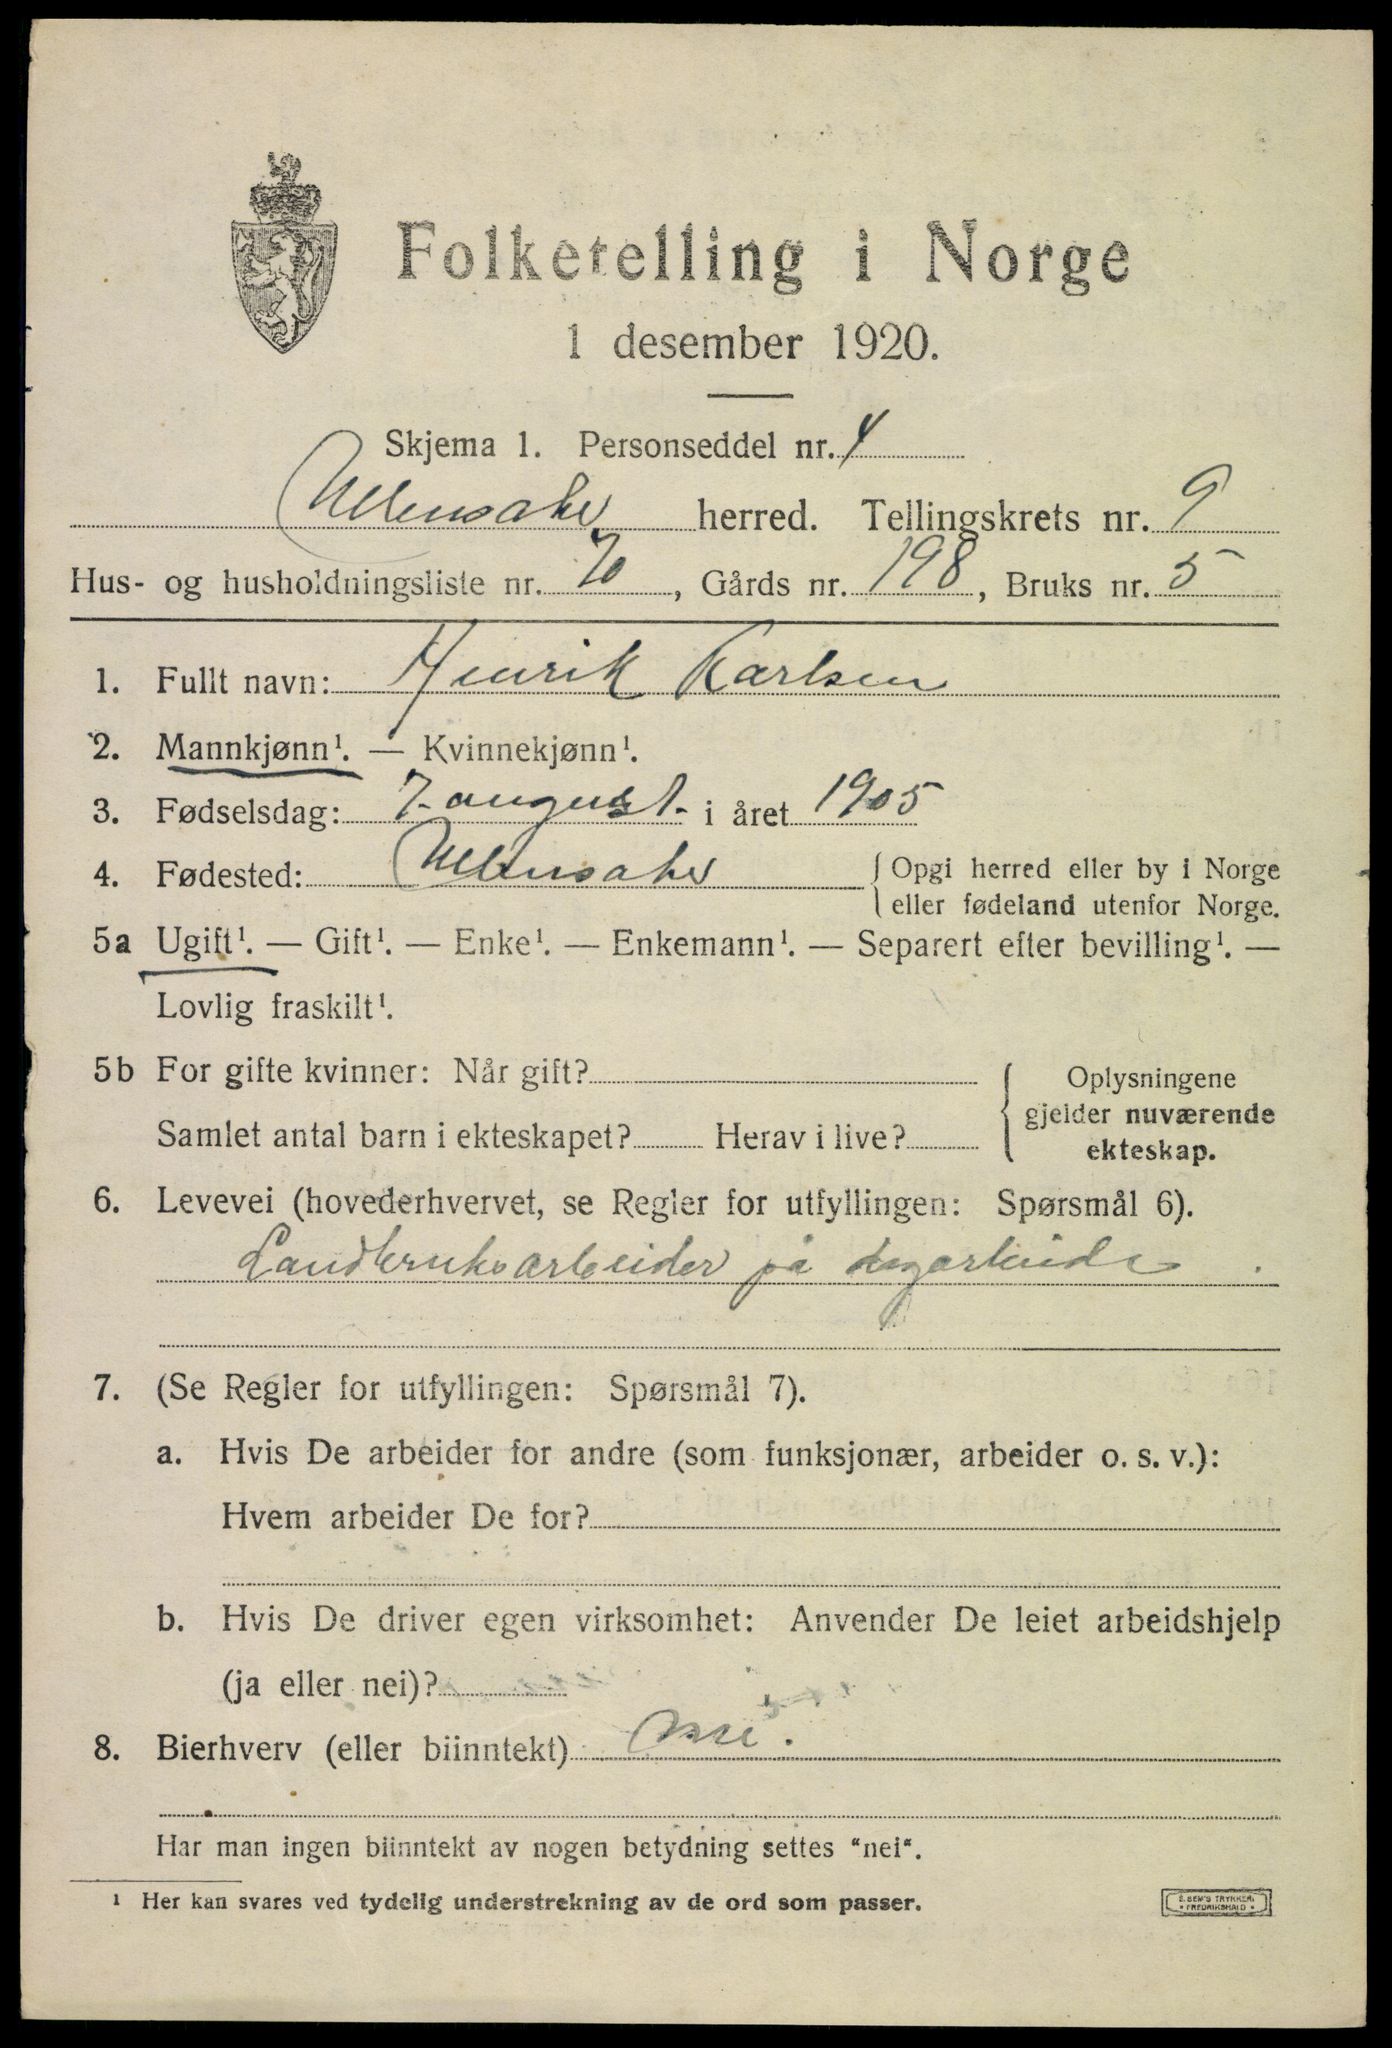 Folketelling i Norge
1 desember 1920.
Skjema 1. Personseddel nr. 4
Ullensaker herred. Tellingskrets nr. 9
Hus- og husholdningsliste nr. 70, Gårds nr. 198, Bruks nr. 5
1. Fullt navn: Henrik Karlsen
2. Mannkjønn¹. — Kvinnekjønn¹.
3. Fødselsdag: 7. august. i året 1905
4. Fødested: Ullensaker { Opgi herred eller by i Norge
eller fødeland utenfor Norge.
5a Ugift¹. — Gift¹. — Enke¹. — Enkemann¹. — Separert efter bevilling¹. —
Lovlig fraskilt¹.
5b For gifte kvinner: Når gift? { Oplysningene
gjelder nuværende
Samlet antal barn i ekteskapet? Herav i live?
ekteskap.
6. Levevei (hovederhvervet, se Regler for utfyllingen: Spørsmål 6).
Landbruksarbeider på dagarbeide
7. (Se Regler for utfyllingen: Spørsmål 7).
a. Hvis De arbeider for andre (som funksjonær, arbeider o. s. v.):
Hvem arbeider De for?
b. Hvis De driver egen virksomhet: Anvender De leiet arbeidshjelp
(ja eller nei)?
8. Bierhverv (eller biinntekt) nei.
Har man ingen biinntekt av nogen betydning settes "nei".
¹ Her kan svares ved tydelig understrekning av de ord som passer.
E. SEM'S TRYKKERI
* FREDRIKSHALD *